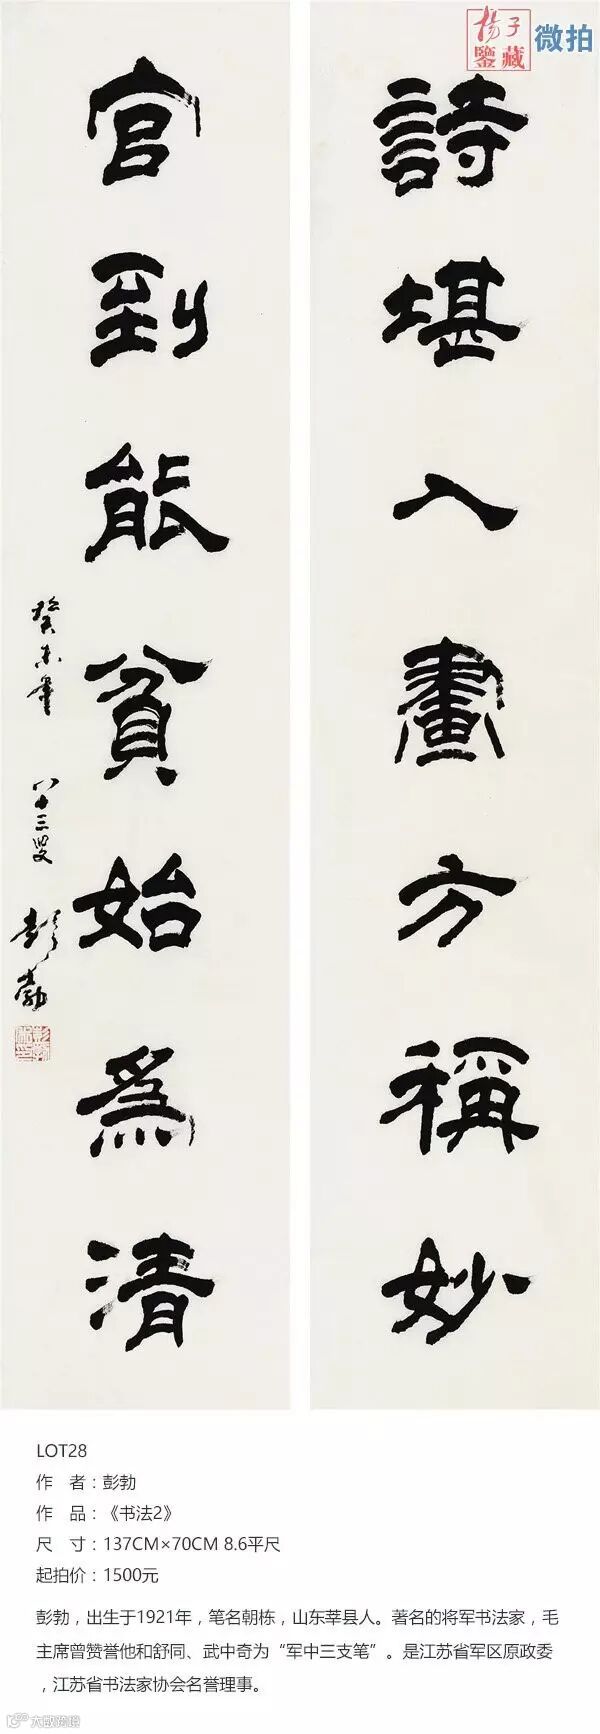 揚子
鑒藏
微拍
詩堪入畫方稱妙
官到能貧始為清
癸未年
八十三叟
彭勃
LOT28
作 者：彭勃
作 品：《书法2》
尺 寸：137CM×70CM 8.6平尺
起拍价：1500元
彭勃，出生于1921年，笔名朝栋，山东莘县人。著名的将军书法家，毛
主席曾赞誉他和舒同、武中奇为“军中三支笔”。是江苏省军区原政委
，江苏省书法家协会名誉理事。
大数跨境